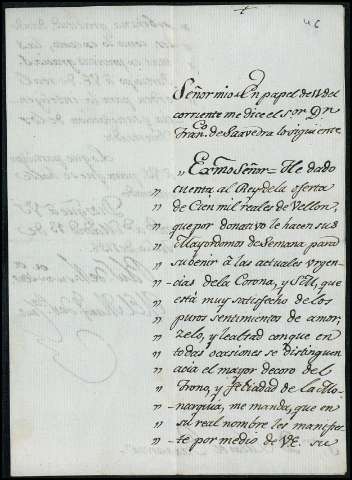 46
Señor mio: En papel de 11 del
corriente me dice el Sor. Dn.
Franco. de Saavedra lo siguiente
„ Exmo. Señor = He dado
„ cuenta al Rey de la oferta
„ de Cien mil reales de Vellon,
„ que por donativo le hacen sus
„ Mayordomos de Semana para
„ subenir à las actuales urgen-
„ cias de la Corona, y S.M. que
„ està muy satisfecho de los
„ puros sentimientos de amor,
„ zelo, y lealtad con que en
„ todas ocasiones se distinguen
„ acia el mayor decoro del
„ Trono, y felicidad de la Mo-
„ narquia, me manda, que en
„ su real nombre les manifies-
„ te por medio de V.E. su